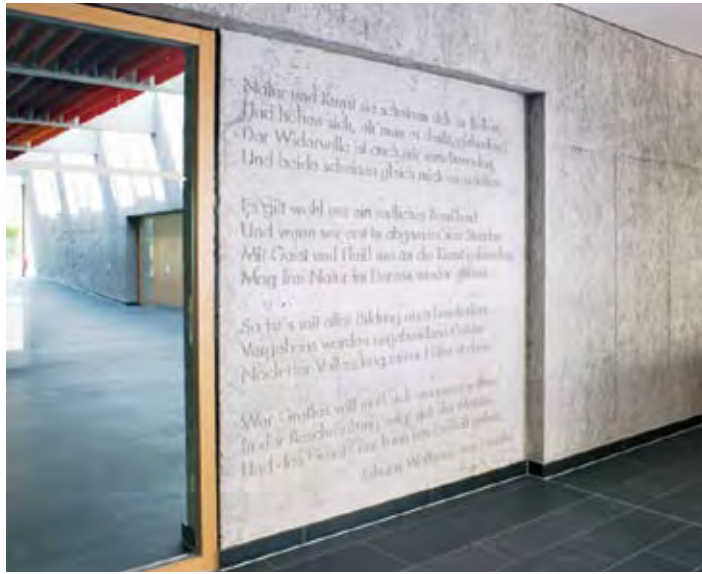 Natur und Kunst sie scheinen sich zu fliehen,
Und haben sich, eh man es denkt, gefunden;
Der Widerwille ist auch mir verschwunden,
Und beide scheinen gleich mich anzuziehen.
Es gilt wohl nur ein redliches Bemühen!
Und wenn wir erst in abgemeßnen Stunden
Mit Geist und Fleiß uns an die Kunst gebunden,
Mag frei Natur im Herzen wieder glühen.
So ist's mit aller Bildung auch beschaffen.
Vergebens werden ungebundne Geister
Nach der Vollendung reiner Höhe streben.
Wer Großes will muß sich zusammenraffen.
In der Beschränkung zeigt sich der Meister,
Und das Gesetz nur kann uns Freiheit geben.
Johann Wolfgang von Goethe